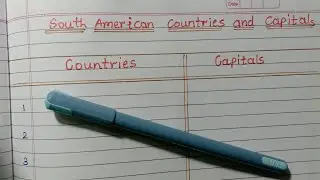 Date
South American Countries and Capitals
Countries Capitals
1
2
3